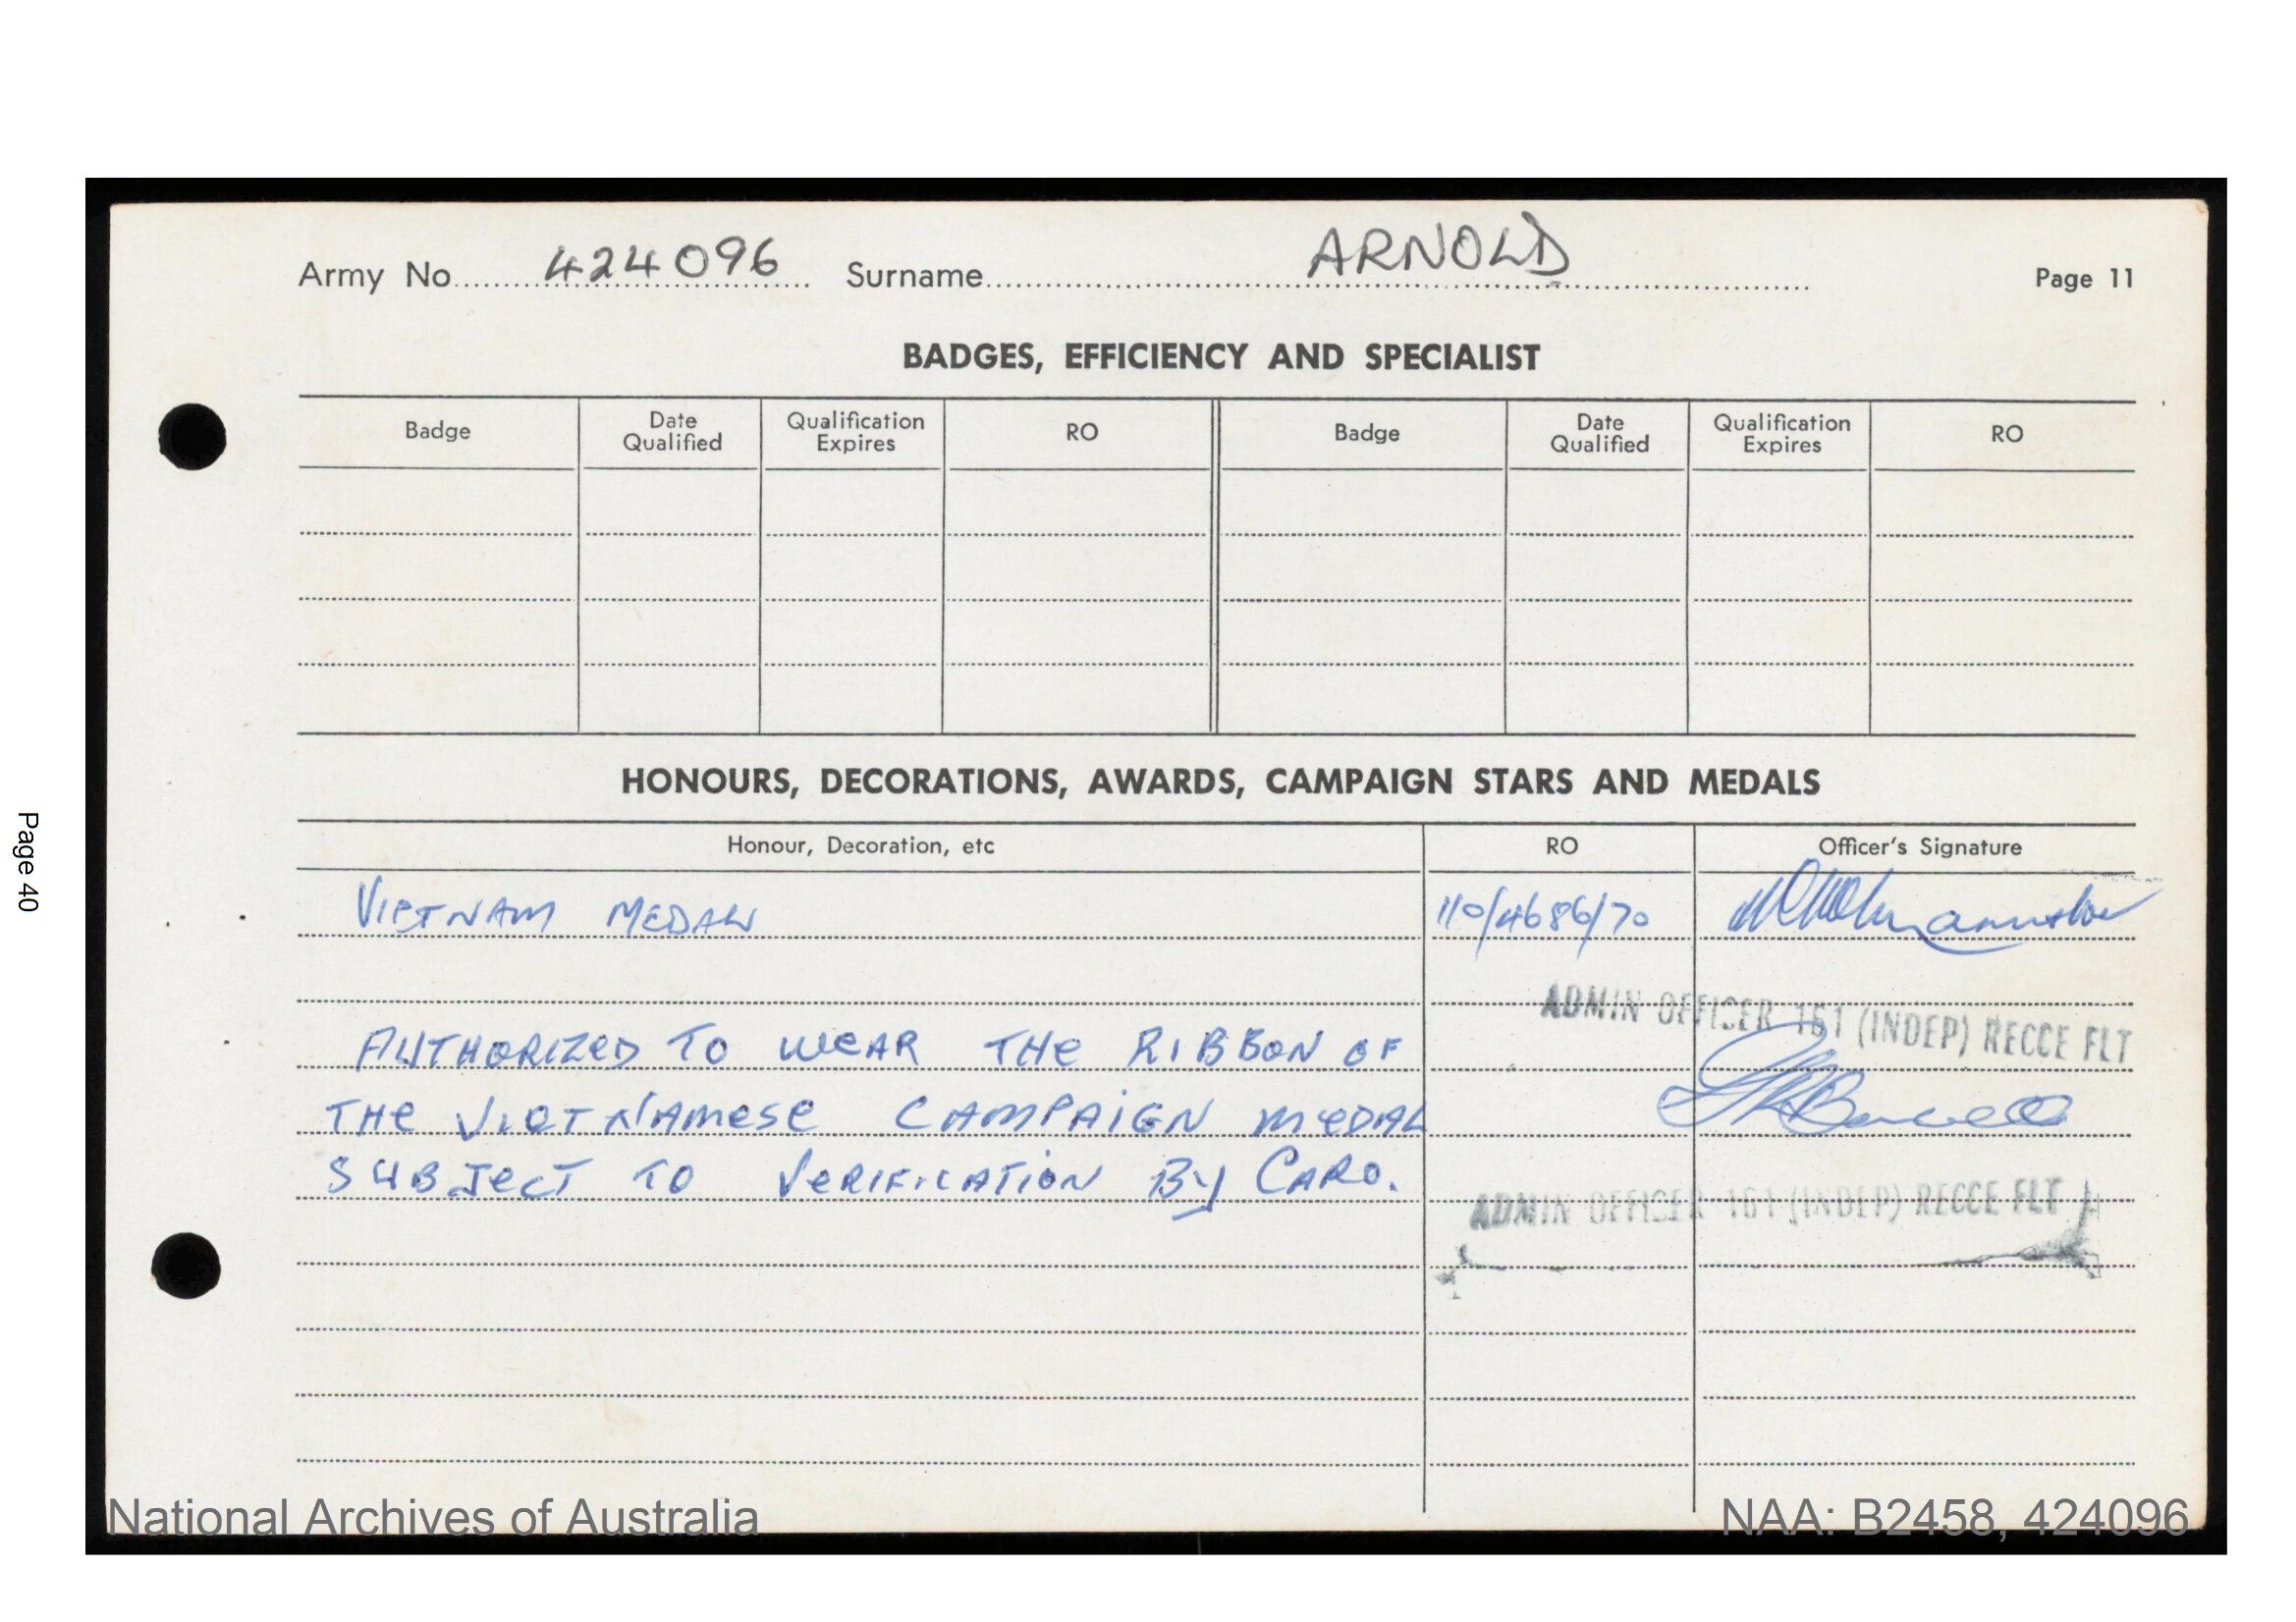 Army No. 424096 Surname ARNOLD Page 11
BADGES, EFFICIENCY AND SPECIALIST
Badge Date Qualified Qualification Expires RO Badge Date Qualified Qualification Expires RO
HONOURS, DECORATIONS, AWARDS, CAMPAIGN STARS AND MEDALS
Honour, Decoration, etc RO Officer's Signature
VIETNAM MEDAL 110/4686/70
ADMIN OFFICER 161 (INDEP) RECCE FLT
AUTHORIZED TO WEAR THE RIBBON OF
THE VIETNAMESE CAMPAIGN MEDAL
SUBJECT TO VERIFICATION BY CARO.
ADMIN OFFICER 161 (INDEP) RECCE FLT
Page 40
National Archives of Australia NAA: B2458, 424096